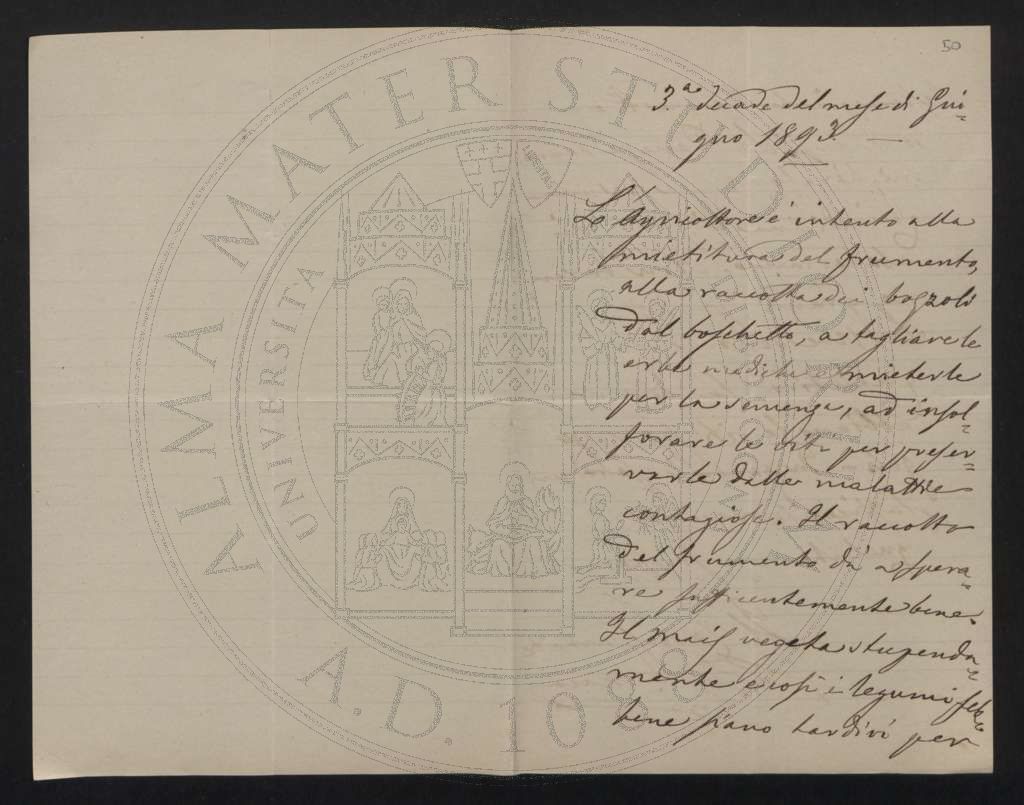 50
3.a decade del mese di Giu-
gno 1893. —
Lo Agricoltore é intento alla
mietitura del frumento,
alla raccolta dei bozzoli
dal boschetto, a tagliare le
erbe mediche e mieterle
per la semenza, ad insol-
forare le viti per preser-
varle dalle malattie
contagiose. Il raccolto
del frumento dà a spera-
re sufficientemente bene.
Il Mais vegeta stupenda-
mente e così i legumi seb-
bene siano tardivi per
ALMA MATER STUDIORUM
A.D. 1088
UNIVERSITÀ DI BOLOGNA
LIBERTAS